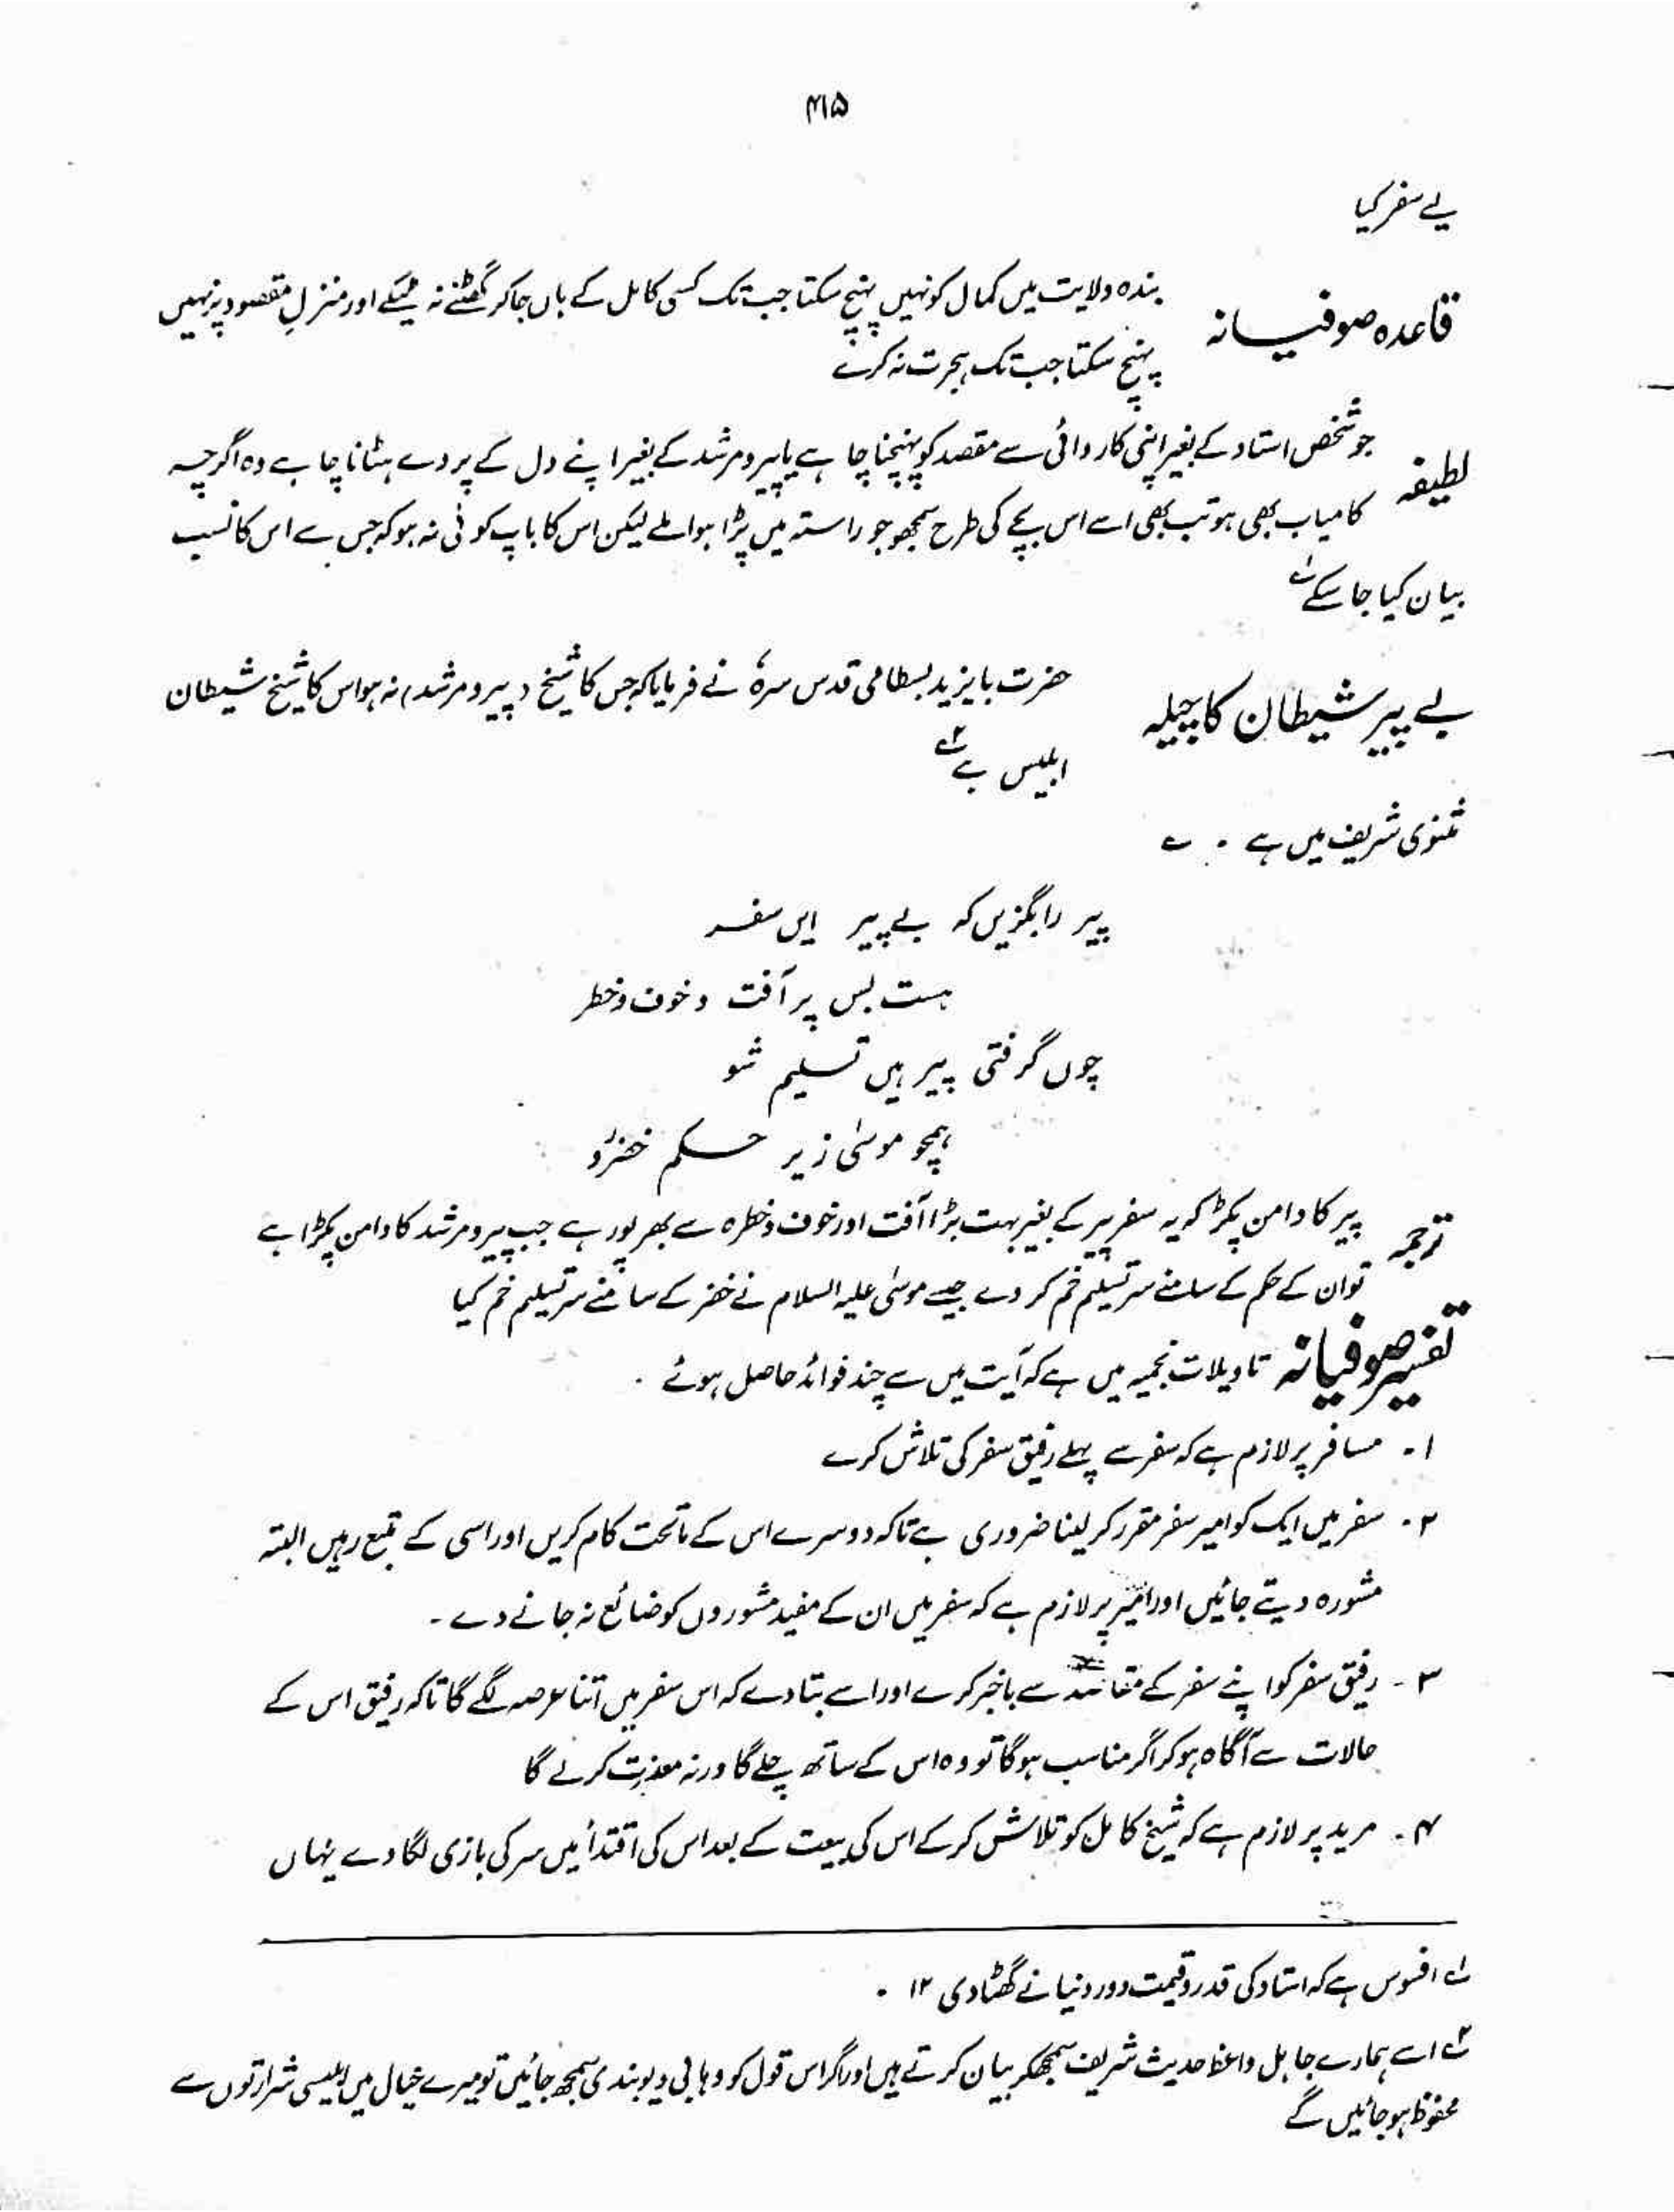 ۴۱۵
لیے سفر کیا
قاعدہ صوفیانہ
بندہ ولایت میں کمال کو نہیں پہنچ سکتا جب تک کسی کامل کے ہاں جا کر گھٹنے نہ ٹیکے اور منزلِ مقصود پر نہیں
پہنچ سکتا جب تک ہجرت نہ کرے
لطیفہ
جو شخص استاد کے بغیر اپنی کاروائی سے مقصد کو پہنچنا چاہے یا پیر و مرشد کے بغیر اپنے دل کے پردے ہٹانا چاہے وہ اگرچہ
کامیاب بھی ہو تب بھی اسے اس بچے کی طرح سمجھو جو راستہ میں پڑا ہوا ملے لیکن اس کا باپ کوئی نہ ہو کہ جس سے اس کا نسب
بیان کیا جا سکے ۱؎
بے پیر شیطان کا چیلہ
حضرت بایزید بسطامی قدس سرہٗ نے فرمایا کہ جس کا شیخ (پیر و مرشد) نہ ہو اس کا شیخ شیطان
ابلیس ہے ۲؎
مثنوی شریف میں ہے ۔ ؎
پیر را بگزیں کہ بے پیر ایں سفر
ہست بس پر آفت و خوف و خطر
چوں گرفتی پیر ہیں تسلیم شو
ہمچو موسٰی زیر حکم خضر رو
ترجمہ
پیر کا دامن پکڑ کہ یہ سفر پیر کے بغیر بہت بڑا آفت اور خوف و خطرہ سے بھرپور ہے جب پیر و مرشد کا دامن پکڑا ہے
تو ان کے حکم کے سامنے سر تسلیم خم کر دے جیسے موسٰی علیہ السلام نے خضر کے سامنے سر تسلیم خم کیا
تفسیر صوفیانہ تاویلات نجمیہ میں ہے کہ آیت میں سے چند فوائد حاصل ہوئے ۔
۱۔ مسافر پر لازم ہے کہ سفر سے پہلے رفیق سفر کی تلاش کرے
۲۔ سفر میں ایک کو امیر سفر مقرر کر لینا ضروری ہے تاکہ دوسرے اس کے ماتحت کام کریں اور اسی کے تبع رہیں البتہ
مشورہ دیتے جائیں اور امیر پر لازم ہے کہ سفر میں ان کے مفید مشوروں کو ضائع نہ جانے دے ۔
۳۔ رفیق سفر کو اپنے سفر کے مقاصد سے باخبر کرے اور اسے بتا دے کہ اس سفر میں اتنا عرصہ لگے گا تاکہ رفیق اس کے
حالات سے آگاہ ہو کر اگر مناسب ہو گا تو وہ اس کے ساتھ چلے گا ورنہ معذرت کر لے گا
۴۔ مرید پر لازم ہے کہ شیخ کامل کو تلاش کر کے اس کی بیعت کے بعد اس کی اقتدأ میں سر کی بازی لگا دے یہاں
۱؎ افسوس ہے کہ استاد کی قدر و قیمت دور دنیا نے گھٹا دی ۱۲ ۔
۲؎ اسے ہمارے جاہل واعظ حدیث شریف سمجھکر بیان کرتے ہیں اور اگر اس قول کو وہابی دیوبندی سمجھ جائیں تو میرے خیال میں ابلیسی شرارتوں سے
محفوظ ہو جائیں گے